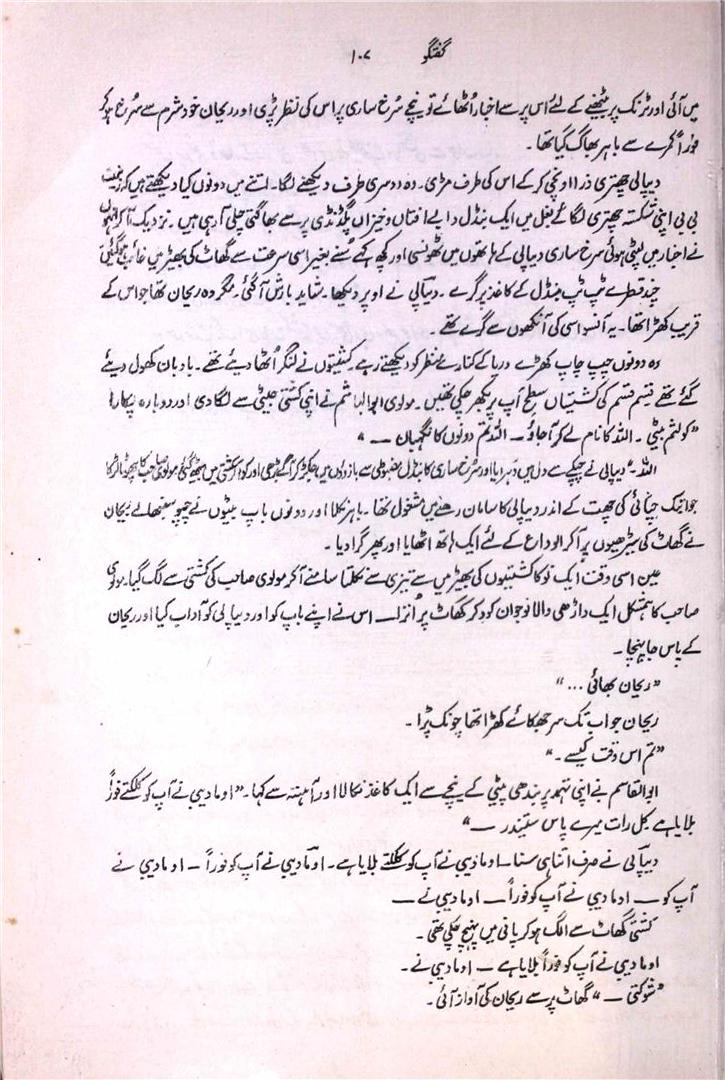 گفتگو ۱۰۷
میں آئی اور ٹرنک پر بیٹھنے کے لئے اس پر سے اخبار اُٹھائے تو نیچے سُرخ ساری پر اس کی نظر پڑی اور ریحان خود شرم سے سُرخ ہو کر
فوراً کمرے سے باہر بھاگ گیا تھا۔
دیپالی چھتری ذرا اونچی کر کے اس کی طرف مڑی۔ وہ دوسری طرف دیکھنے لگا۔ اتنے میں دونوں کیا دیکھتے ہیں کہ زینت
بی بی اپنی شکستہ چھتری لگائے بغل میں ایک بنڈل دابے افتاں و خیزاں پگڈنڈی پر سے بھاگتی چلی آرہی ہیں۔ نزدیک آ کر انہوں
نے اخبار میں لپٹی ہوئی سرخ ساری دیپالی کے ہاتھوں میں ٹھونسی اور کچھ کہے سُنے بغیر اسی سرعت سے گھاٹ کی بھیڑ میں غائب ہو گئیں
چند قطرے ٹپ ٹپ بنڈل کے کاغذ پر گرے۔ دیپالی نے اوپر دیکھا۔ شاید بارش آ گئی۔ مگر وہ ریحان تھا جو اس کے
قریب کھڑا تھا۔ یہ آنسو اسی کی آنکھوں سے گرے تھے۔
وہ دونوں چپ چاپ کھڑے دریا کے کنارے منظر کو دیکھتے رہے۔ کشتیوں نے لنگر اُٹھا دیئے تھے۔ بادبان کھول دیئے
گئے تھے قسم قسم کی کشتیاں سطحِ آپ پر بکھر چکی تھیں۔ مولوی ابوالہاشم نے اپنی کشتی جیٹی سے لگا دی اور دوبارہ پکارا
"کولثم بیٹی۔ اللہ کا نام لے کر آجاؤ — اللہ تم دونوں کا نگہبان — "
اللہ۔" دیپالی نے چپکے سے دل میں دُہرایا اور سُرخ ساری کا بنڈل مضبوطی سے بازوؤں میں جکڑ کر آگے بڑھی اور کود کر کشتی میں بیٹھ گئی مولوی صاحب کا چھوٹا لڑکا
جو اب تک چٹائی کی چھت کے اندر دیپالی کا سامان رکھنے میں مشغول تھا۔ باہر نکلا اور دونوں باپ بیٹوں نے چپو سنبھالے ریحان
نے گھاٹ کی سیڑھیوں پر آ کر الوداع کے لئے ایک ہاتھ اٹھایا اور پھر گرا دیا۔
عین اسی وقت ایک نوکا کشتیوں کی بھیڑ میں سے تیزی سے نکلتا سامنے آ کر مولوی صاحب کی کشتی سے لگ گیا۔ مولوی
صاحب کا ہمشکل ایک داڑھی والا نوجوان کود کر گھاٹ پر اُترا — اس نے اپنے باپ کو اور دیپالی کو آداب کیا اور ریحان
کے پاس جا پہنچا۔
"ریحان بھائی ..."
ریحان جو اب تک سر جھکائے کھڑا تھا چونک پڑا۔
"تم اس وقت کیسے۔"
ابوالقاسم نے اپنی تہمد پر بندھی پیٹی کے نیچے سے ایک کاغذ نکالا اور آہستہ سے کہا۔ "اوما دیبی نے آپ کو کلکتے فوراً
بلایا ہے کل رات میرے پاس ستیندر — "
دیپالی نے صرف اتنا ہی سنا۔ اوما دیبی نے آپ کو کلکتے بلایا ہے۔ اوما دیبی نے آپ کو فوراً — اوما دیبی نے
آپ کو — اوما دیبی نے آپ کو فوراً — اوما دیبی نے —
کشتی گھاٹ سے الگ ہو کر پانی میں پہنچ چکی تھی۔
اوما دیبی نے آپ کو فوراً بلایا ہے — اوما دیبی نے۔
"شوکتی — " گھاٹ پر سے ریحان کی آواز آئی۔